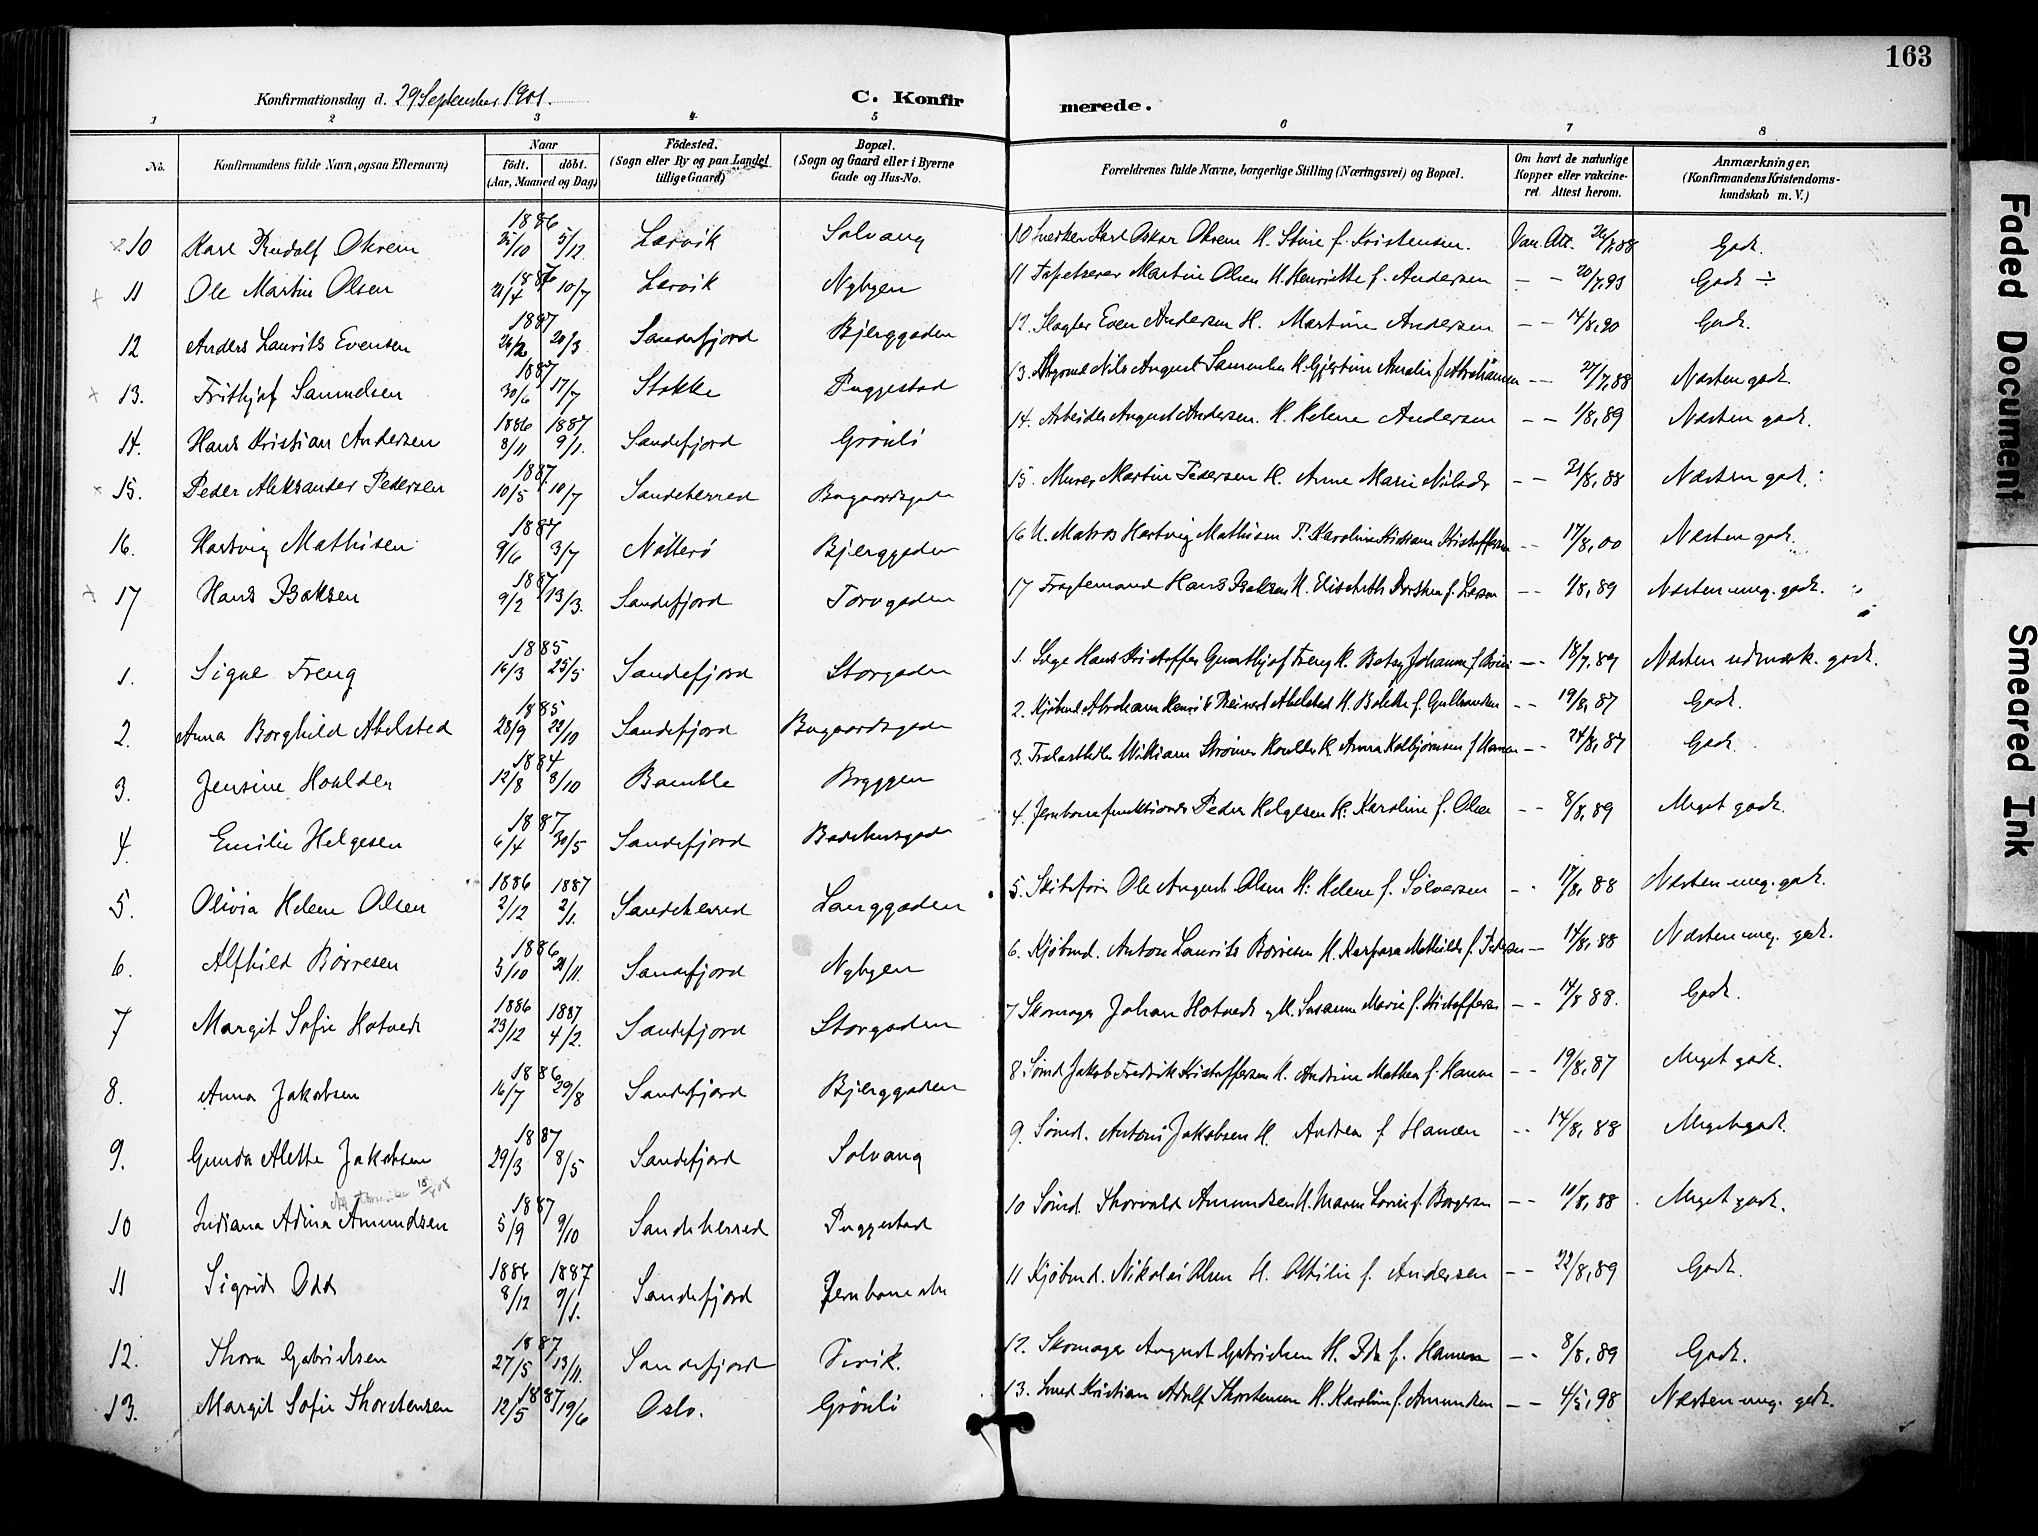 163
Konfirmationsdag d. 29 September 1901.
C. Konfirmerede.
1 2 3 4 5 6 7 8
No. Konfirmandens fulde Navn, ogsaa Efternavn) Naar født. døbt. (Aar, Maaned og Dag) Fødested. (Sogn eller By og paa Landet tillige Gaard) Bopæl. (Sogn og Gaard eller i Byerne Gade og Hus-No. Forældrenes fulde Navne, borgerlige Stilling (Næringsvei) og Bopæl. Om havt de naturlige Kopper eller vakcineret. Attest herom. Anmærkninger. (Konfirmandens Kristendomskundskab m. V.)
10 Karl Rudolf Økrem 1886 /10 5/12 Larvik Solvang 10 Karl Oskar Økrem H. f. Kristensen. Vac. Att. 26/7 88 Godt.
11 Ole Martin Olsen 21/4 10/7 Larvik Nybyen 11 Tapetserer Martin Olsen H. Henriette f. Andersen – – 20/7, 93 Godt ÷
12 Anders Laurits Evensen 1887 26/2 20/3 Sandefjord Bjerggaden 12 Slagter Even Andersen H. Martine Andersen – – 14/8, 90 Godt.
13. Frithjof Samuelsen 1887 30/6 17/7 Stokke Puggestad 13. Nils August Samuelsen H. Gjertine Amalie f. Abrahamsen – – 27/7, 88 Næsten godt.
14. Hans Kristian Andersen 1886 8/11 1887 9/1. Sandefjord Grønli 14. Arbeider August Andersen. H. Helene Andersen – – 1/8, 89 Næsten godt.
15. Peder Aleksander Pedersen 1887 10/5 10/7 Sandeherred Bugaardsgade 15. Murer Martin Pedersen H. Anne Marie – – 21/8, 88 Næsten godt.
16. Hartvig Mathisen 1887 9/6 3/7 Nøtterø Bjerggaden 16 U. Matros Hartvig Mathisen P. Karoline Kristiane Kristoffersen – – 17/8, 00 Næsten godt.
17 Hans Isaksen 1887 9/2 13/3. Sandefjord Torvgaden 17 Fragtemand Hans Isaksen H. Elisabeth Dorthea f. Larsen – – 1/8, 89 Næsten meg. godt.
1. Signe Freng 1885 16/3 25/5 Sandefjord Storgaden 1. Læge Hans Kristoffer Gunthjof Freng H. Betsy Johanne f. – – 18/7, 89 Næsten udmærk. godt.
2. Anna Borghild Abelsted 1885 28/9 22/10 Sandefjord Bugaardsgade 2. Kjøbmd Abraham Henrik Reinert Abelsted H. Bolette f. Gulbrandsen – – 19/8, 87 Godt.
3. Jensine Houlder 1884 12/8 8/10 Bamble Bryggen 3. William Strømer Houlder H. Anna Kolbjørnsen f. Hansen – – 24/8, 87 Godt
4. Emilie Helgesen 1887 6/4 30/5 Sandefjord Badehusgade 4. Jernbanefunktionær Peder Helgesen H. Karoline f. Olsen – – 8/8, 89 Meget godt.
5. Olivia Helene Olsen 1886 2/12 1887 2/1. Sandeherred Langgaden 5. Skibsfører Ole August Olsen H. Helene f. Sølversen – – 17/8, 88 Næsten meg. godt.
6. Alfhild Børresen 1886 3/10 21/11. Sandefjord Nybyen 6. Kjøbmd. Anton Laurits Børresen H. Kaspara Mathilde f. – 14/8, 88 Næsten meg. godt.
7 Margit Sofie Hotvedt 1886 23/12 1887 4/2. Sandefjord Storgaden 7 Skomager Johan Hotvedt og H. Susanne Marie f. Kristoffersen – – 14/8 88. Godt.
8. Anna Jakobsen 1886 16/7 29/8 Sandefjord Bjerggaden 8. Sømd Jakob Fredrik Kristoffersen H. Andrine Mathea f. Hansen – – 19/8, 87 Meget godt.
9. Gunda Alette Jakobsen 1887 29/3 8/5 Sandefjord Solvang 9. Sømd. Antoni Jakobsen H. Andrea f. Hansen – – 14/8, 88 Meget godt.
10 Indiana Adina Amundsen 1887 5/9 9/10 Sandeherred Puggestad 10 Sømd. Thorvald Amundsen H. Maren Lovise f. Borgersen – – 10/8, 88 Meget godt.
11 Sigrid Odd 1886 8/12 1887 9/1. Sandefjord Jernbane 11 Kjøbmd. Nikolai Olsen H. Ottilie f. Andersen – – 22/8, 89 Godt.
12. Thora Gabrielsen 1887 27/5 13/11. Sandefjord Virik. 12. Skomager August Gabrielsen H. Ida f. Hansen – – 8/8, 89 Godt.
13. Margit Sofie Thorstensen 1887 12/5 19/6 Oslo. Grønli 13. Smed Kristian Adolf Thorstensen H. Karoline f. Amundsen – – 4/5, 98 Næsten meg. godt.
Faded Document
Smeared Ink